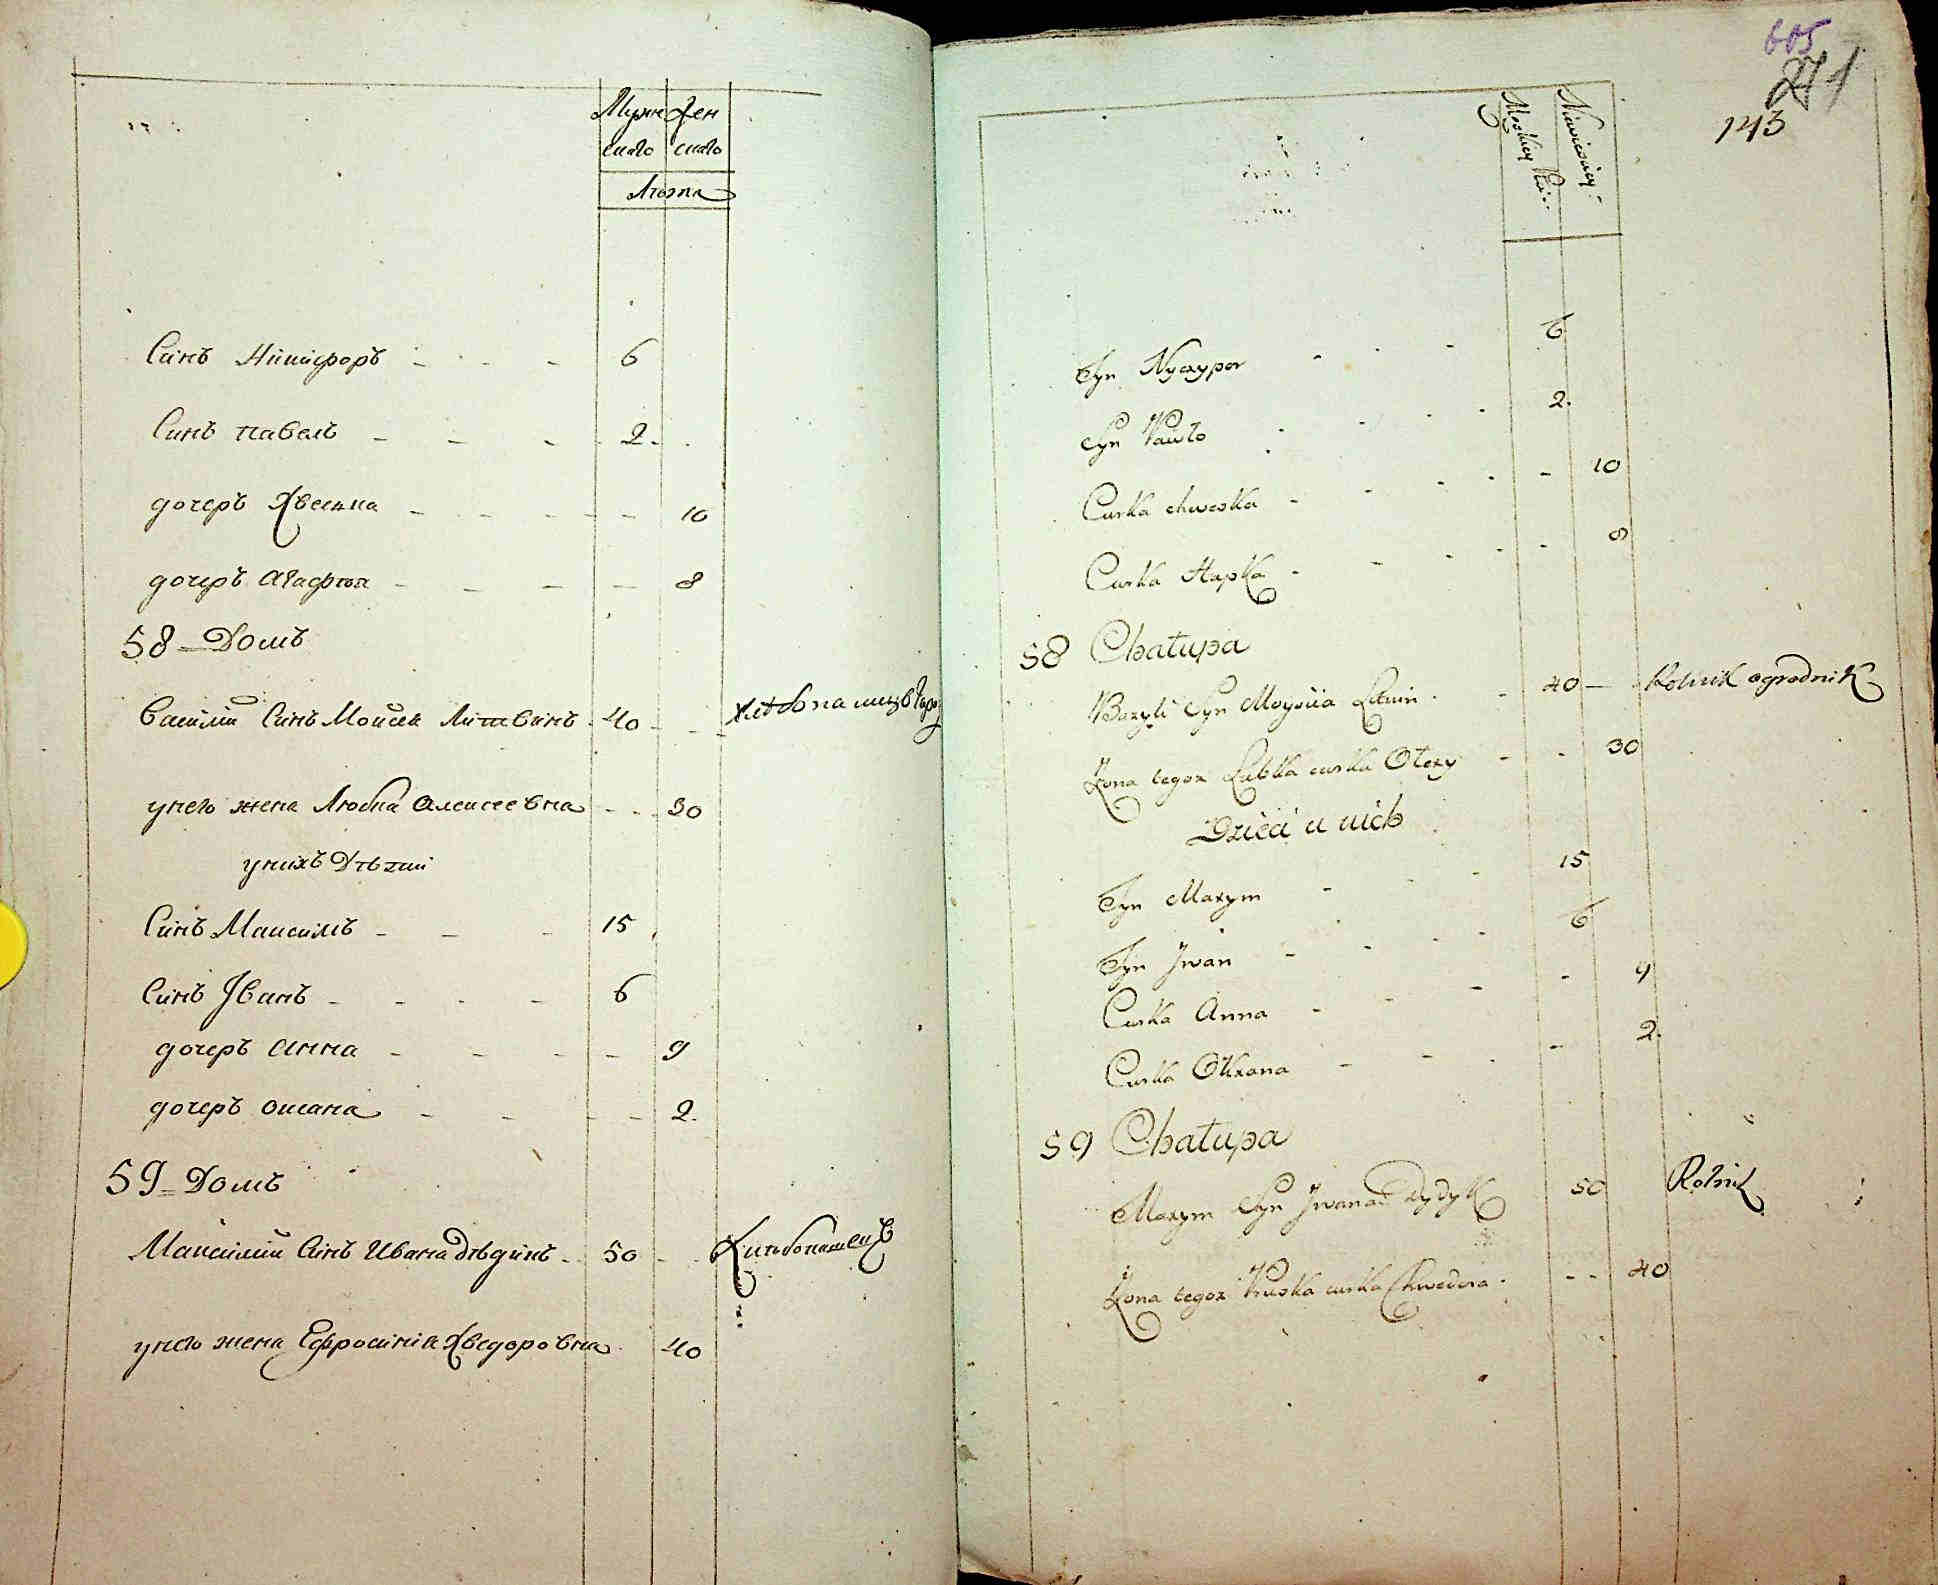 Мужескаго Женскаго
Лѣта
Синъ Никифоръ 6
Синъ павелъ 2
дочеръ Хвеська 10
дочеръ агафія 8
58 Домъ
Василій Синъ Моисея Литвинъ 40
унего жена Любка Алексеевна 30
унихъ Дѣтии
Синъ Максимъ 15
Синъ Іванъ 6
дочеръ Анна 9
дочеръ оксана 2
59 Домъ
Максимъ Синъ Ивана дѣдикъ 50 Хлѣбопашецъ
унего жена Ефросинія Хведоровна 40
605
271
143
Syn Nyczypor 6
Syn Pawło 2
Curka chweska 10
Curka Hapka 8
58 Chałupa
Bazyli Syn Moysiia Litwin 40 Rolnik ogrodnik
Żona tegoż Lubka curka Ołexy 30
Dzieci u nich
Syn Maxym 15
Syn Jwan 6
Curka Anna 9
Curka Oxana 2
59 Chałupa
Maxym Syn Jwana Dydyk 50 Rolnik
Żona tegoż Pruska curka Chwedora 40